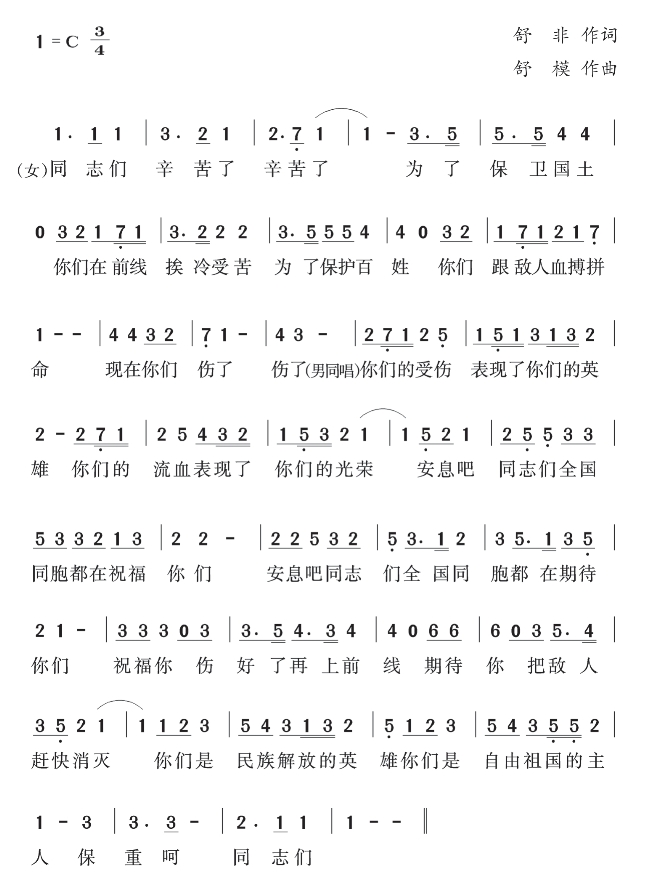 1 = C 3/4
舒 非 作词
舒 模 作曲
1. 1 1 | 3. 2 1 | 2. 7 1 | 1 - 3. 5 | 5. 5 4 4 |
(女)同 志们 辛 苦了 辛苦了 为 了 保 卫国土
0 3 2 1 7 1 | 3. 2 2 2 | 3. 5 5 5 4 | 4 0 3 2 | 1 7 1 2 1 7 |
你们在前线 挨 冷受苦 为 了保护百 姓 你们 跟敌人血搏拼
1 - - | 4 4 3 2 | 7 1 - | 4 3 - | 2 7 1 2 5 | 1 5 1 3 1 3 2 |
命 现在你们 伤了 伤了(男同唱)你们的受伤 表现了你们的英
2 - 2 7 1 | 2 5 4 3 2 | 1 5 3 2 1 | 1 5 2 1 | 2 5 5 3 3 |
雄 你们的 流血表现了 你们的光荣 安息吧 同志们全国
5 3 3 2 1 3 | 2 2 - | 2 2 5 3 2 | 5 3. 1 2 | 3 5. 1 3 5 |
同胞都在祝福 你们 安息吧同志 们全 国同 胞都 在期待
2 1 - | 3 3 3 0 3 | 3. 5 4. 3 4 | 4 0 6 6 | 6 0 3 5. 4 |
你们 祝福你 伤 好 了再 上前 线 期待 你 把敌 人
3 5 2 1 | 1 1 2 3 | 5 4 3 1 3 2 | 5 1 2 3 | 5 4 3 5 5 2 |
赶快消灭 你们是 民族解放的英 雄你们是 自由祖国的主
1 - 3 | 3. 3 - | 2. 1 1 | 1 - - ‖
人 保 重呵 同 志们